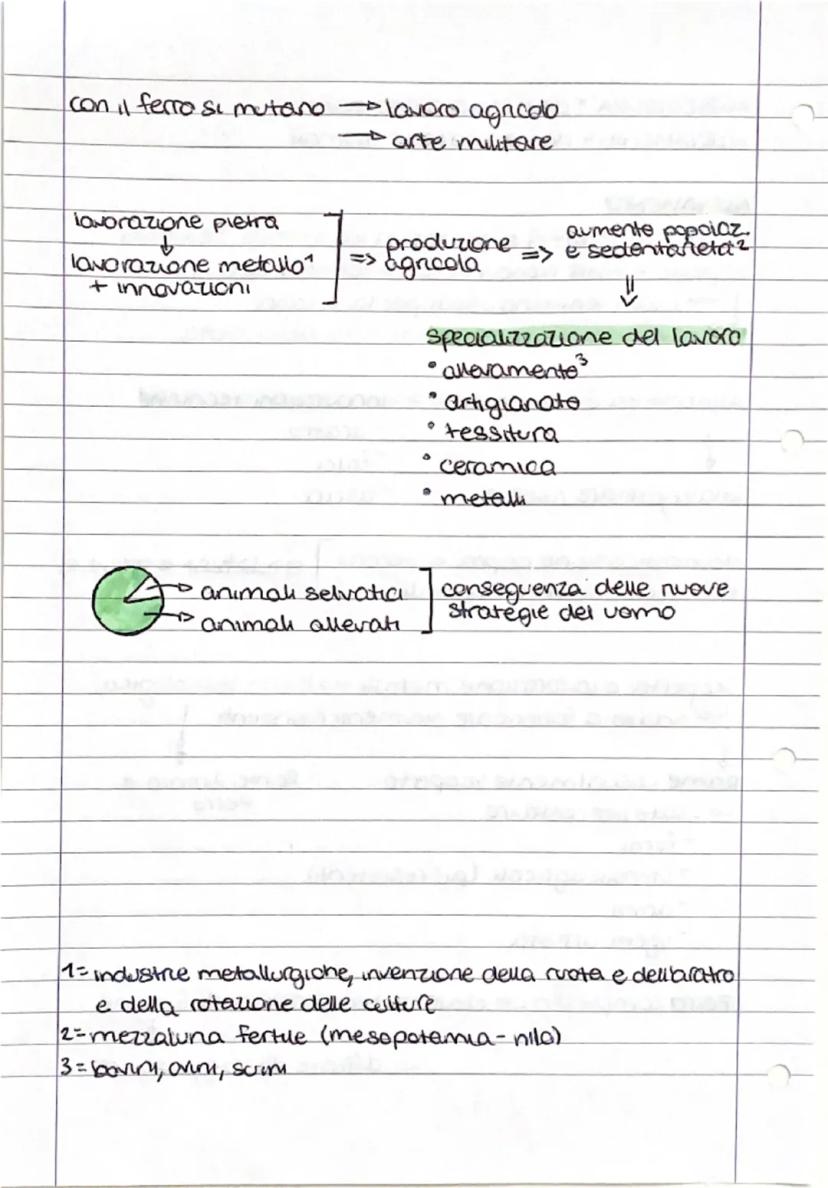 con il ferro si mutano → lavoro agricolo
→ arte militare
lavorazione pietra
↓
lavorazione metallo¹
+ innovazioni
=> produzione
agricola
=> aumento popolaz.
e sedentarietà²
⇓
specializzazione del lavoro
• allevamento³
• artigianato
• tessitura
• ceramica
• metalli
→ animali selvatici
→ animali allevati
conseguenza delle nuove
strategie del uomo
1= industrie metallurgiche, invenzione della ruota e dell'aratro
e della rotazione delle culture
2= mezzaluna fertile (mesopotamia - nilo)
3= bovini, ovini, suini